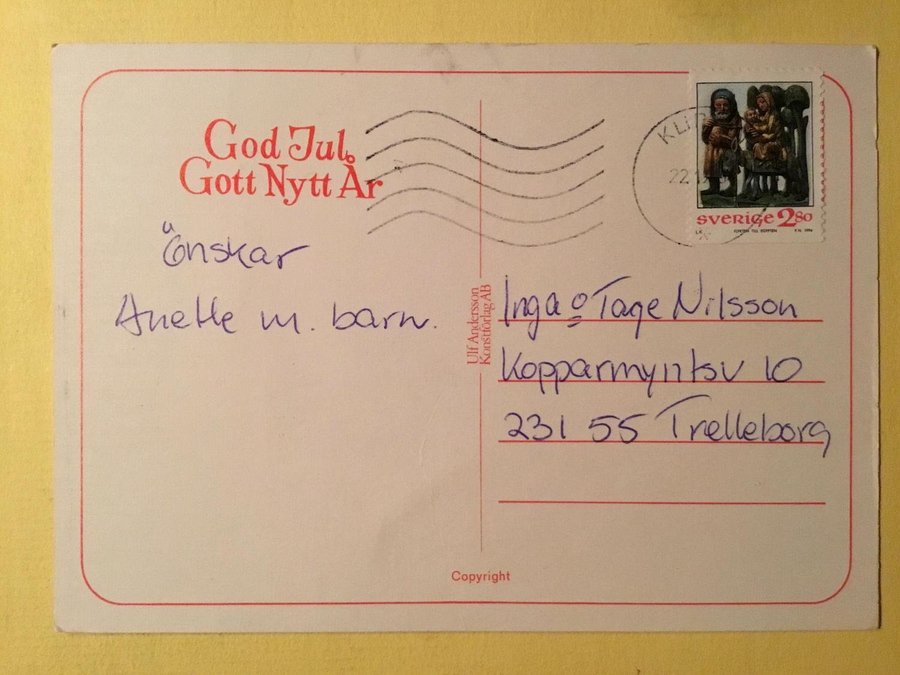 God Jul
Gott Nytt År
Önskar
Anette m. barn.
SVERIGE 2 80
Ulf Andersson
Konstförlag AB
Inga o Tage Nilsson
Kopparmyntsv 10
231 55 Trelleborg
Copyright